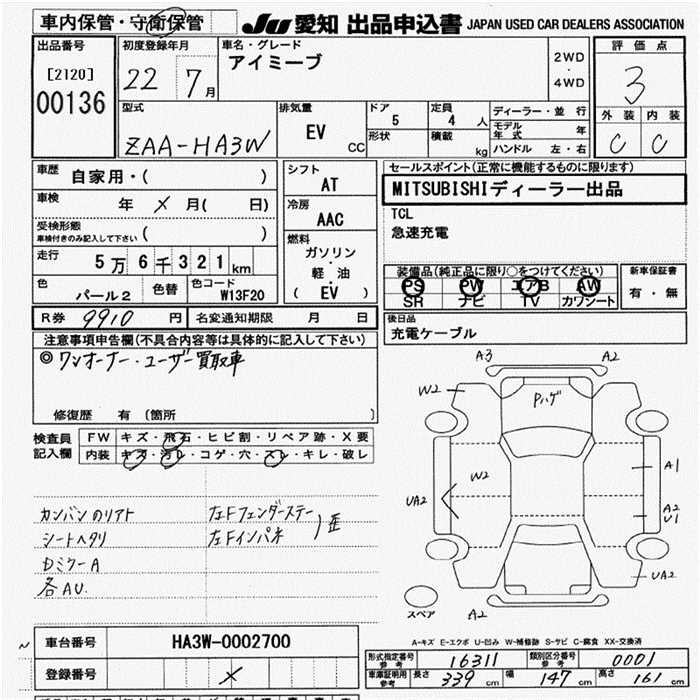 車内保管・守衛保管
JU 愛知 出品申込書 JAPAN USED CAR DEALERS ASSOCIATION
出品番号
[2120]
00136
初度登録年月
22 7月
車名・グレード
アイミーブ
2WD
・
4WD
評価点
3
外装 内装
C C
型式
ZAA-HA3W
排気量
EV
CC
ドア
5
定員
4 人
形状
積載
kg
ディーラー・並行
モデル年式 年
ハンドル 左・右
車歴
自家用・( )
車検
年 × 月( 日)
受検形態
車検付きのみ記入して下さい ( )
走行
5万6千321km
色
パール2
色替
色コード
W13F20
シフト
AT
冷房
AAC
燃料
ガソリン
・
軽・油
( EV )
セールスポイント(正常に機能するものに限ります)
MITSUBISHIディーラー出品
TCL
急速充電
装備品(純正品に限り○をつけてください)
PS PW エアB AW
SR ナビ TV カワシート
新車保証書
有・無
R券 9910 円
名変通知期限 月 日
後日品
充電ケーブル
注意事項申告欄(不具合内容等は具体的に記入して下さい)
◎ワンオーナー・ユーザー買取車
修復歴 有 (箇所 )
検査員
記入欄
FW キズ・飛石・ヒビ割・リペア跡・X要
内装 キズ・汚レ・コゲ・穴・スレ・キレ・破レ
カンバンのリアト
シートヘタリ
DミラーA
各AU.
左Fフェンダーステー
左Fインパネ
A3
A2
W2
Pハゲ
A1
W2
UA2
A2
U1
UA2
スペア
A2
A-キズ E-エクボ U-凹み W-補修跡 S-サビ C-腐食 XX-交換済
車台番号
HA3W-0002700
登録番号
×
形式指定番号
参考
16311
類別区分番号
参考
0001
車庫証明用
参考
長さ 339 cm
幅 147 cm
高さ 161 cm